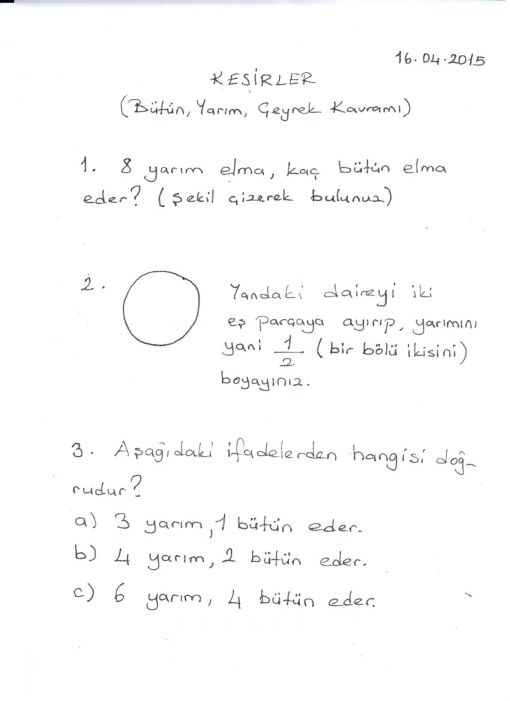 16.04.2015
KESİRLER
(Bütün, Yarım, Çeyrek Kavramı)
1. 8 yarım elma, kaç bütün elma
eder? (Şekil çizerek bulunuz)
2. Yandaki daireyi iki
eş parçaya ayırıp, yarımını
yani 1/2 (bir bölü ikisini)
boyayınız.
3. Aşağıdaki ifadelerden hangisi doğ-
rudur?
a) 3 yarım, 1 bütün eder.
b) 4 yarım, 2 bütün eder.
c) 6 yarım, 4 bütün eder.